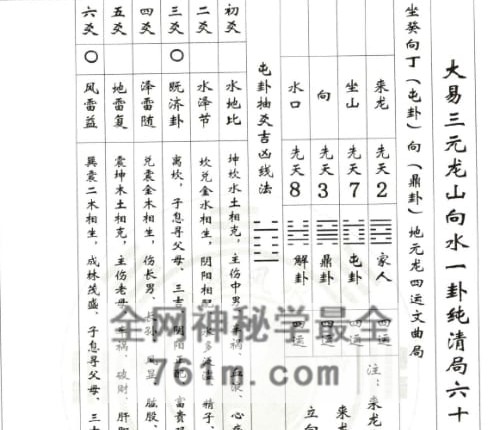 大易三元龙山向水一卦纯清局六十
坐癸向丁(屯卦)向(鼎卦)地元龙四运文曲局
来龙 先天2 家人 四运 注:来龙
坐山 先天7 屯卦 四运 来龙
向 先天3 鼎卦 四运 立向
水口 先天8 解卦 四运
屯卦抽爻吉凶线法
初爻 水地比 坤坎水土相克,主伤中男
二爻 水泽节 坎兑金水相生,阴阳相 精子、
三爻 〇 既济卦 离坎,子息寻父母、三吉 阴阳正配 富贵
四爻 泽雷随 兑震金木相生,伤长男、 脑股、
五爻 地雷复 震坤木土相克,主伤老母 祸、破财、肝
六爻 〇 风雷益 巽震二木相生,成林茂盛,子息寻父母、三吉
全网神秘学最全
761m.com